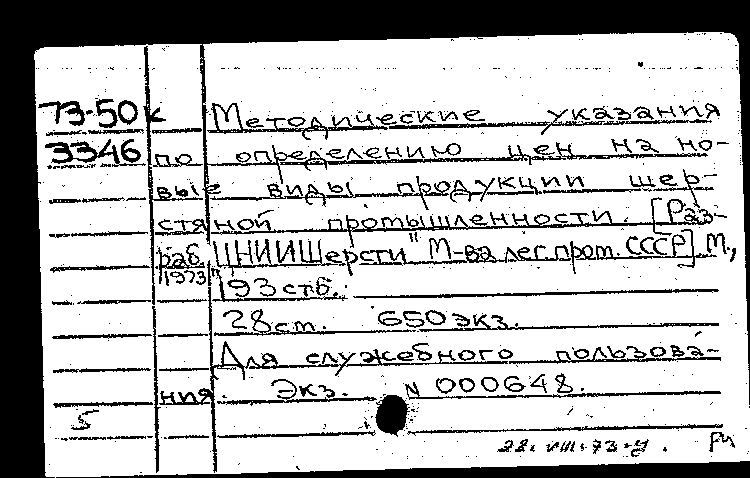 73-50к Методические указания
3346 по определению цен на но-
вые виды продукции шер-
стяной промышленности. [Раз-
раб. ЦНИИШерсти" М-ва лег. пром. СССР]. М.,
1973
193 стб.
28см. 650 экз.
Для служебного пользова-
ния. Экз. N 000648.
5